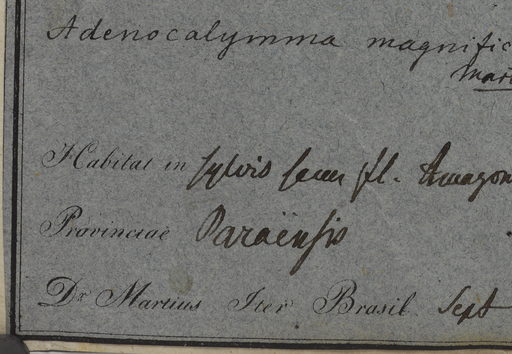 Adenocalymma magnific
Mart
Habitat in sylvis secus fl. Amazon
Provinciae Paraënsis
Dr. Martius Iter Brasil. Sept